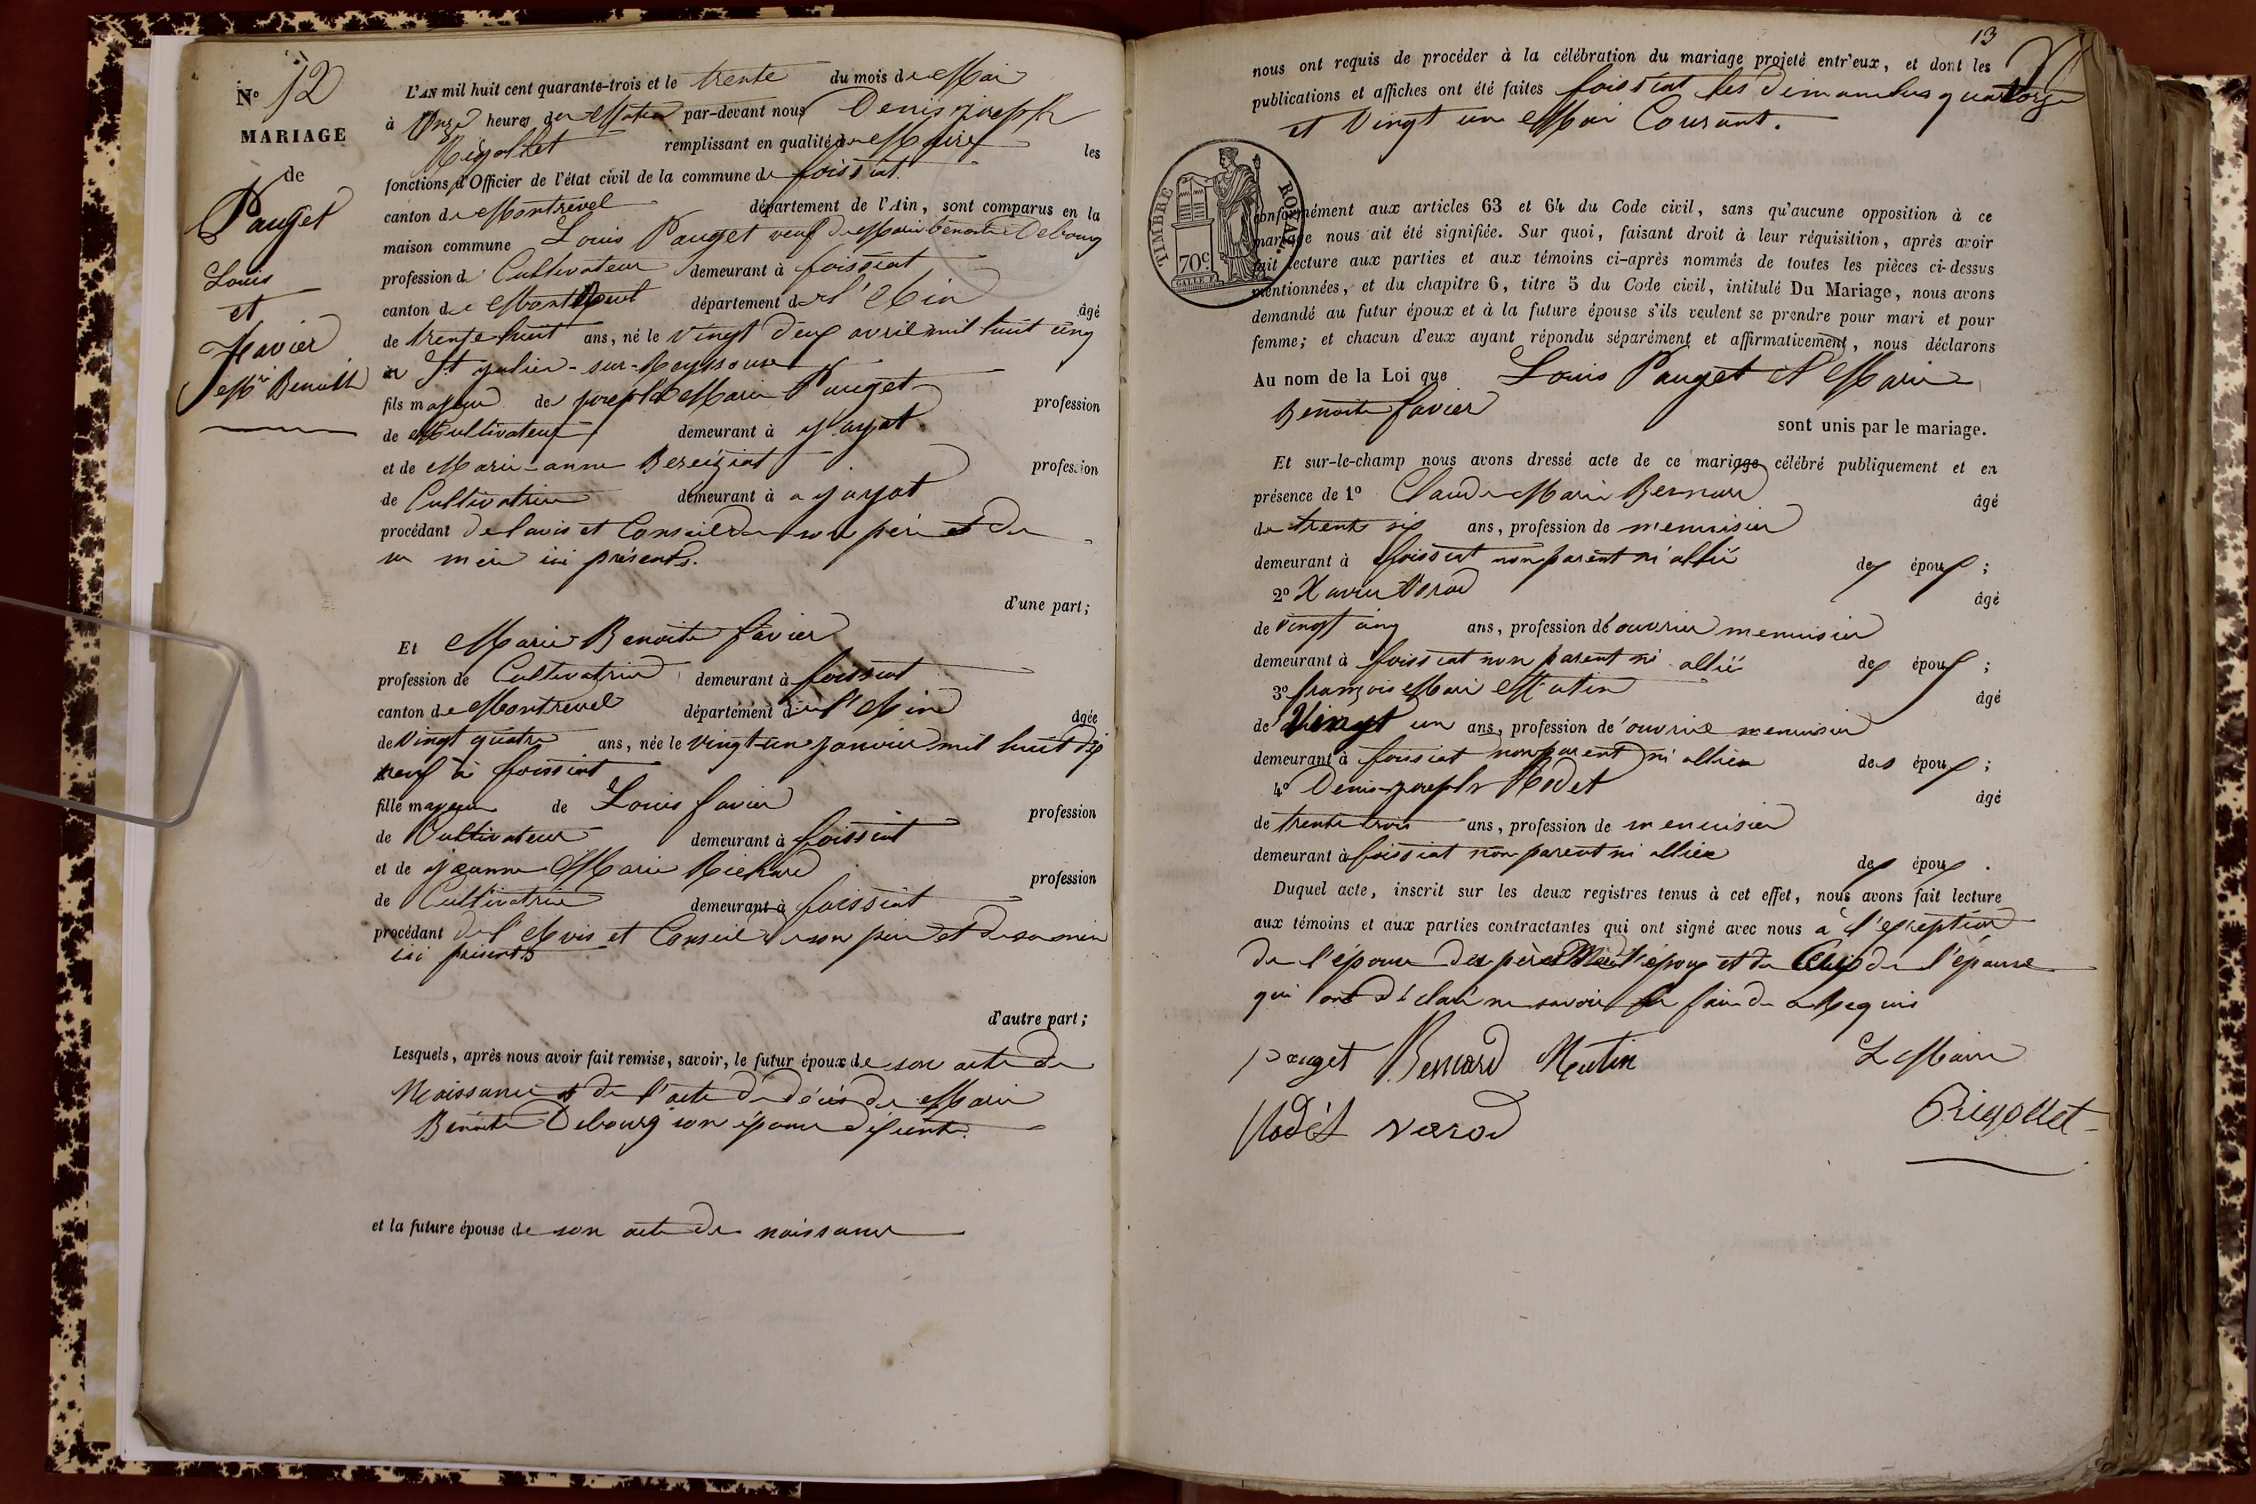 N° 12
MARIAGE
de
Pauget
Louis
et
Favier
Mie Benoite
L'AN mil huit cent quarante-trois et le trente du mois de Mai
à Onze heures du Matin par-devant nous Denis Joseph
Rigollet remplissant en qualité de Maire les
fonctions d'Officier de l'état civil de la commune de foissiat
canton de Montrevel département de l'Ain, sont comparus en la
maison commune Louis Pauget veuf de Marie benoite Debourg
profession de Cultivateur demeurant à foissiat
canton de Montrevel département de l'Ain âgé
de trente huit ans, né le vingt deux avril mil huit cinq
à St julien-sur-Reyssouze
fils majeur de joseph Marie Pauget profession
de Cultivateur demeurant à jayat
et de Marie-anne Bereiziat profession
de Cultivatrice demeurant à a jayat
procédant de l'avis et Conseil de son père et de
sa mère ici présents.
d'une part;
Et Marie Benoite favier
profession de Cultivatrice demeurant à foissiat
canton de Montrevel département de l'Ain âgée
de vingt quatre ans, née le vingt-un janvier mil huit dix
neuf à foissiat
fille majeure de Louis favier profession
de Cultivateur demeurant à foissiat
et de jeanne Marie Richard profession
de Cultivatrice demeurant à foissiat
procédant de l'Avis et Conseil de son père et de sa mère
ici présents
d'autre part;
Lesquels, après nous avoir fait remise, savoir, le futur époux de son acte de
Naissance et de l'acte de décès de Marie
Benoite Debourg son épouse défunte.
et la future épouse de son acte de naissance
13
nous ont requis de procéder à la célébration du mariage projeté entr'eux, et dont les
publications et affiches ont été faites foissiat les dimanches quatorze
et vingt un Mai Courant.
TIMBRE ROYAL
70c
conformément aux articles 63 et 64 du Code civil, sans qu'aucune opposition à ce
mariage nous ait été signifiée. Sur quoi, faisant droit à leur réquisition, après avoir
fait lecture aux parties et aux témoins ci-après nommés de toutes les pièces ci-dessus
mentionnées, et du chapitre 6, titre 5 du Code civil, intitulé Du Mariage, nous avons
demandé au futur époux et à la future épouse s'ils veulent se prendre pour mari et pour
femme; et chacun d'eux ayant répondu séparément et affirmativement, nous déclarons
Au nom de la Loi que Louis Pauget et Marie
Benoite favier
sont unis par le mariage.
Et sur-le-champ nous avons dressé acte de ce mariage célébré publiquement et en
présence de 1° Claude Marie Bernard âgé
de trente six ans, profession de menuisier
demeurant à foissiat non parent ni allié des époux;
2° Xavier Verod âgé
de vingt cinq ans, profession d'ouvrier menuisier
demeurant à foissiat non parent ni allié des époux;
3° françois Marie Mutin âgé
de vingt un ans, profession de ouvrier menuisier
demeurant à foissiat non parent ni allié des époux;
4° Denis-joseph Rodet âgé
de trente trois ans, profession de menuisier
demeurant à foissiat non parent ni allié des époux.
Duquel acte, inscrit sur les deux registres tenus à cet effet, nous avons fait lecture
aux témoins et aux parties contractantes qui ont signé avec nous à l'exception
de l'épouse des père l'époux et de de l'épouse
qui ont déclaré ne savoir le faire de ce Requis
pauget Bernard Mutin Le Maire
Rodet verod Rigollet